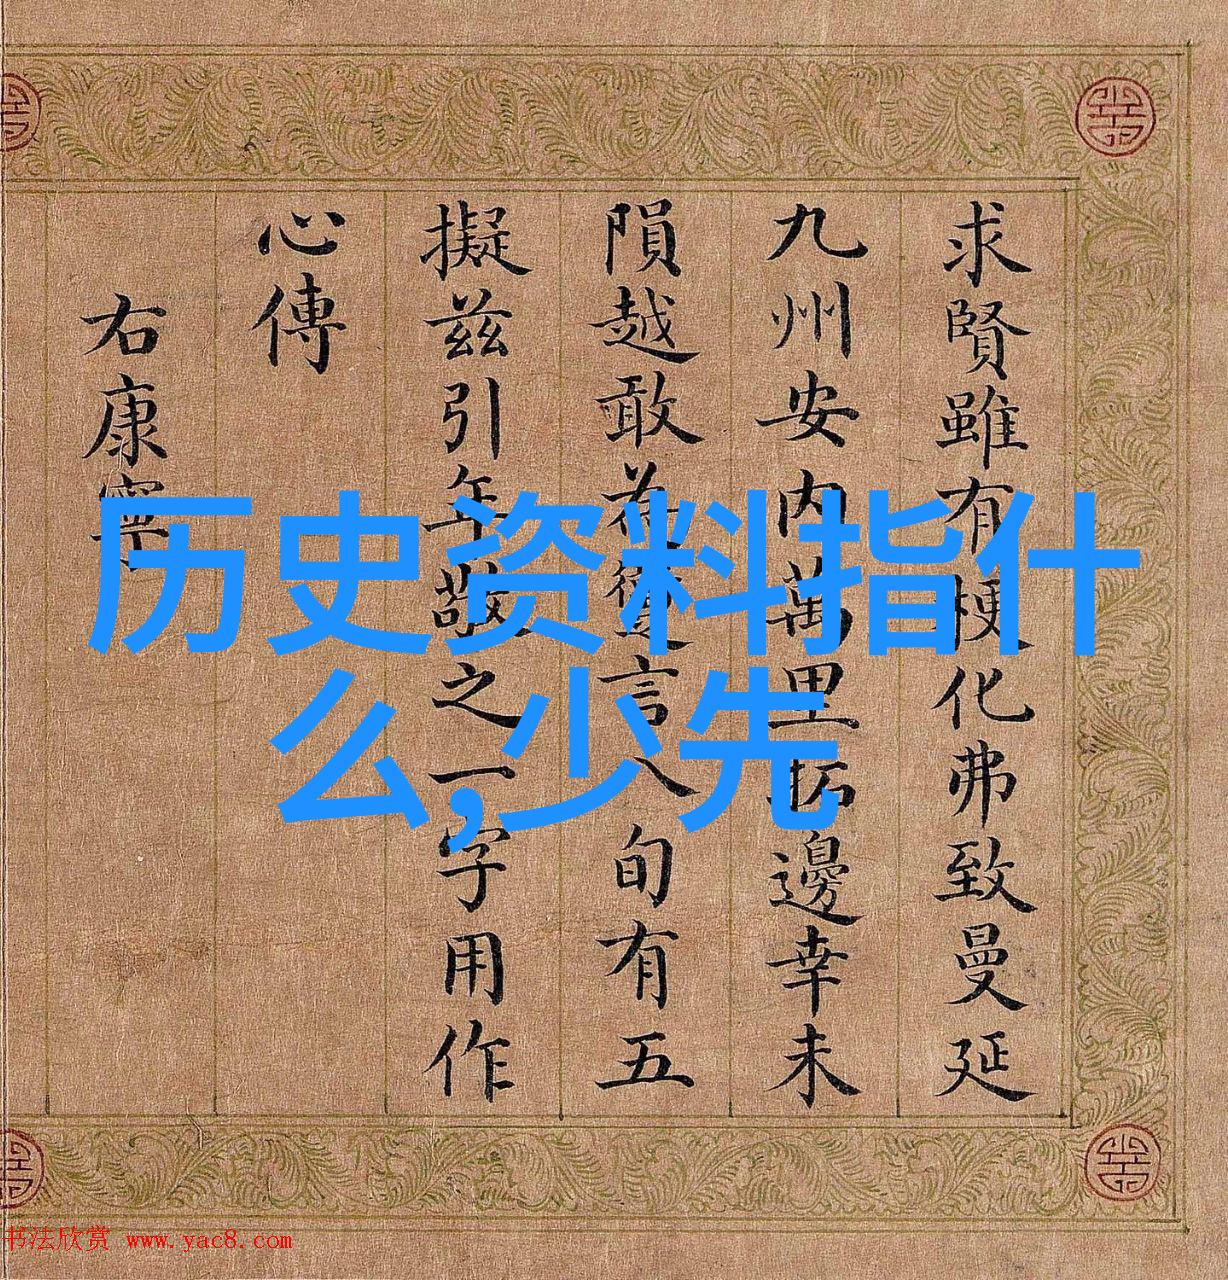 求賢雖有梗化弗致曼延
九州安内萬里拓邊幸未
隕越敢為譽言八旬有五
擬茲引年敬之一字用作
心傳
右康寧
历史资料指什
么,少先
书法欣赏 www.yac8.com